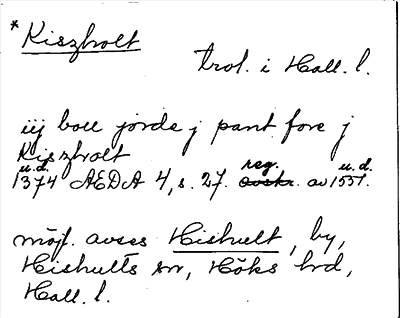 * Kiszholt
trol. i Hall. l.
iij boll jorde j pant fore j
Kiszholt
u.d. reg. u.d.
1374 AEDA 4, s. 27. avskr. av 1551.
möjl. avses Hishult, by,
Hishults sn, Höks hrd,
Hall. l.